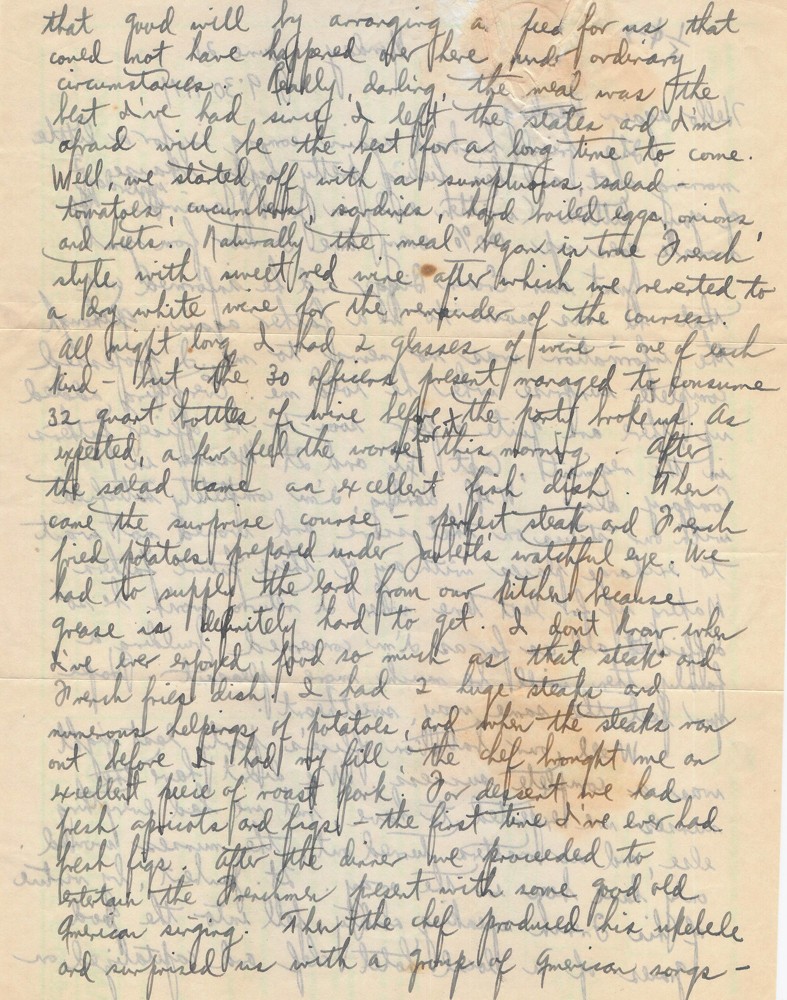 that good will by arranging a feed for us, that
could not have happened over here under ordinary
circumstances. Really, darling, the meal was the
best I've had since I left the states and I'm
afraid will be the best for a long time to come.
Well, we started off with a sumptuous salad -
tomatoes, cucumbers, sardines, hard boiled eggs, onions
and beets. Naturally the meal began in true French
style with sweet red wine after which we reverted to
a dry white wine for the remainder of the courses.
All night long I had 2 glasses of wine - one of each
kind - but the 30 officers present managed to consume
32 quart bottles of wine before the party broke up. As
expected, a few feel the worse for it this morning. After
the salad came an excellent fish dish. Then
came the surprise course - perfect steak and French
fried potatoes prepared under watchful eye. We
had to supply the lard from our kitchen because
grease is definitely hard to get. I don't know when
I've ever enjoyed food so much as that steak and
French fries dish. I had 2 huge steaks and
numerous helpings of potatoes, and when the steaks ran
out before I had my fill, the chef brought me an
excellent piece of roast pork. For dessert we had
fresh apricots and figs - the first time I've ever had
fresh figs. After the dinner we proceeded to
entertain the Frenchmen present with some good old
American singing. Then the chef produced his ukelele
and surprised us with a group of American songs -